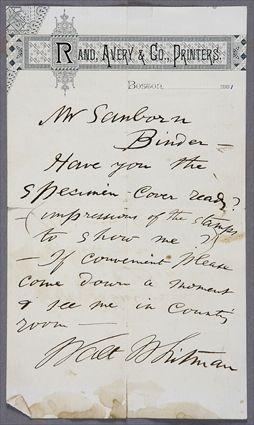 RAND, AVERY & CO., PRINTERS.
BOSTON 1881
Mr Sanborn
Binder —
Have you the
specimen-cover ready?
(impressions of the stamps
to show me?)
— If convenient please
come down a moment
& see me in Counting
room —
Walt Whitman